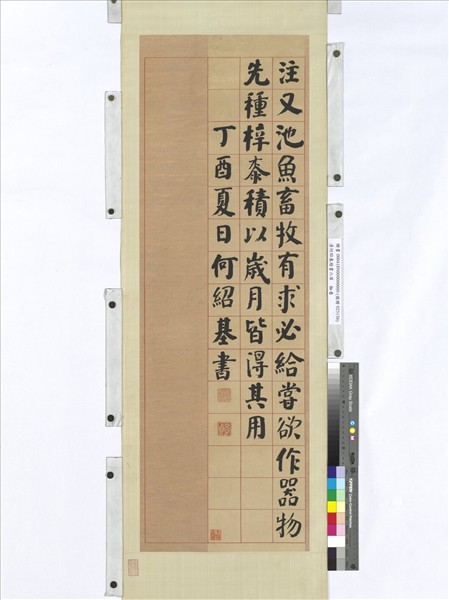 注又池魚畜牧有求必給嘗欲作器物
先種梓桼積以歲月皆得其用
丁酉夏日何紹基書